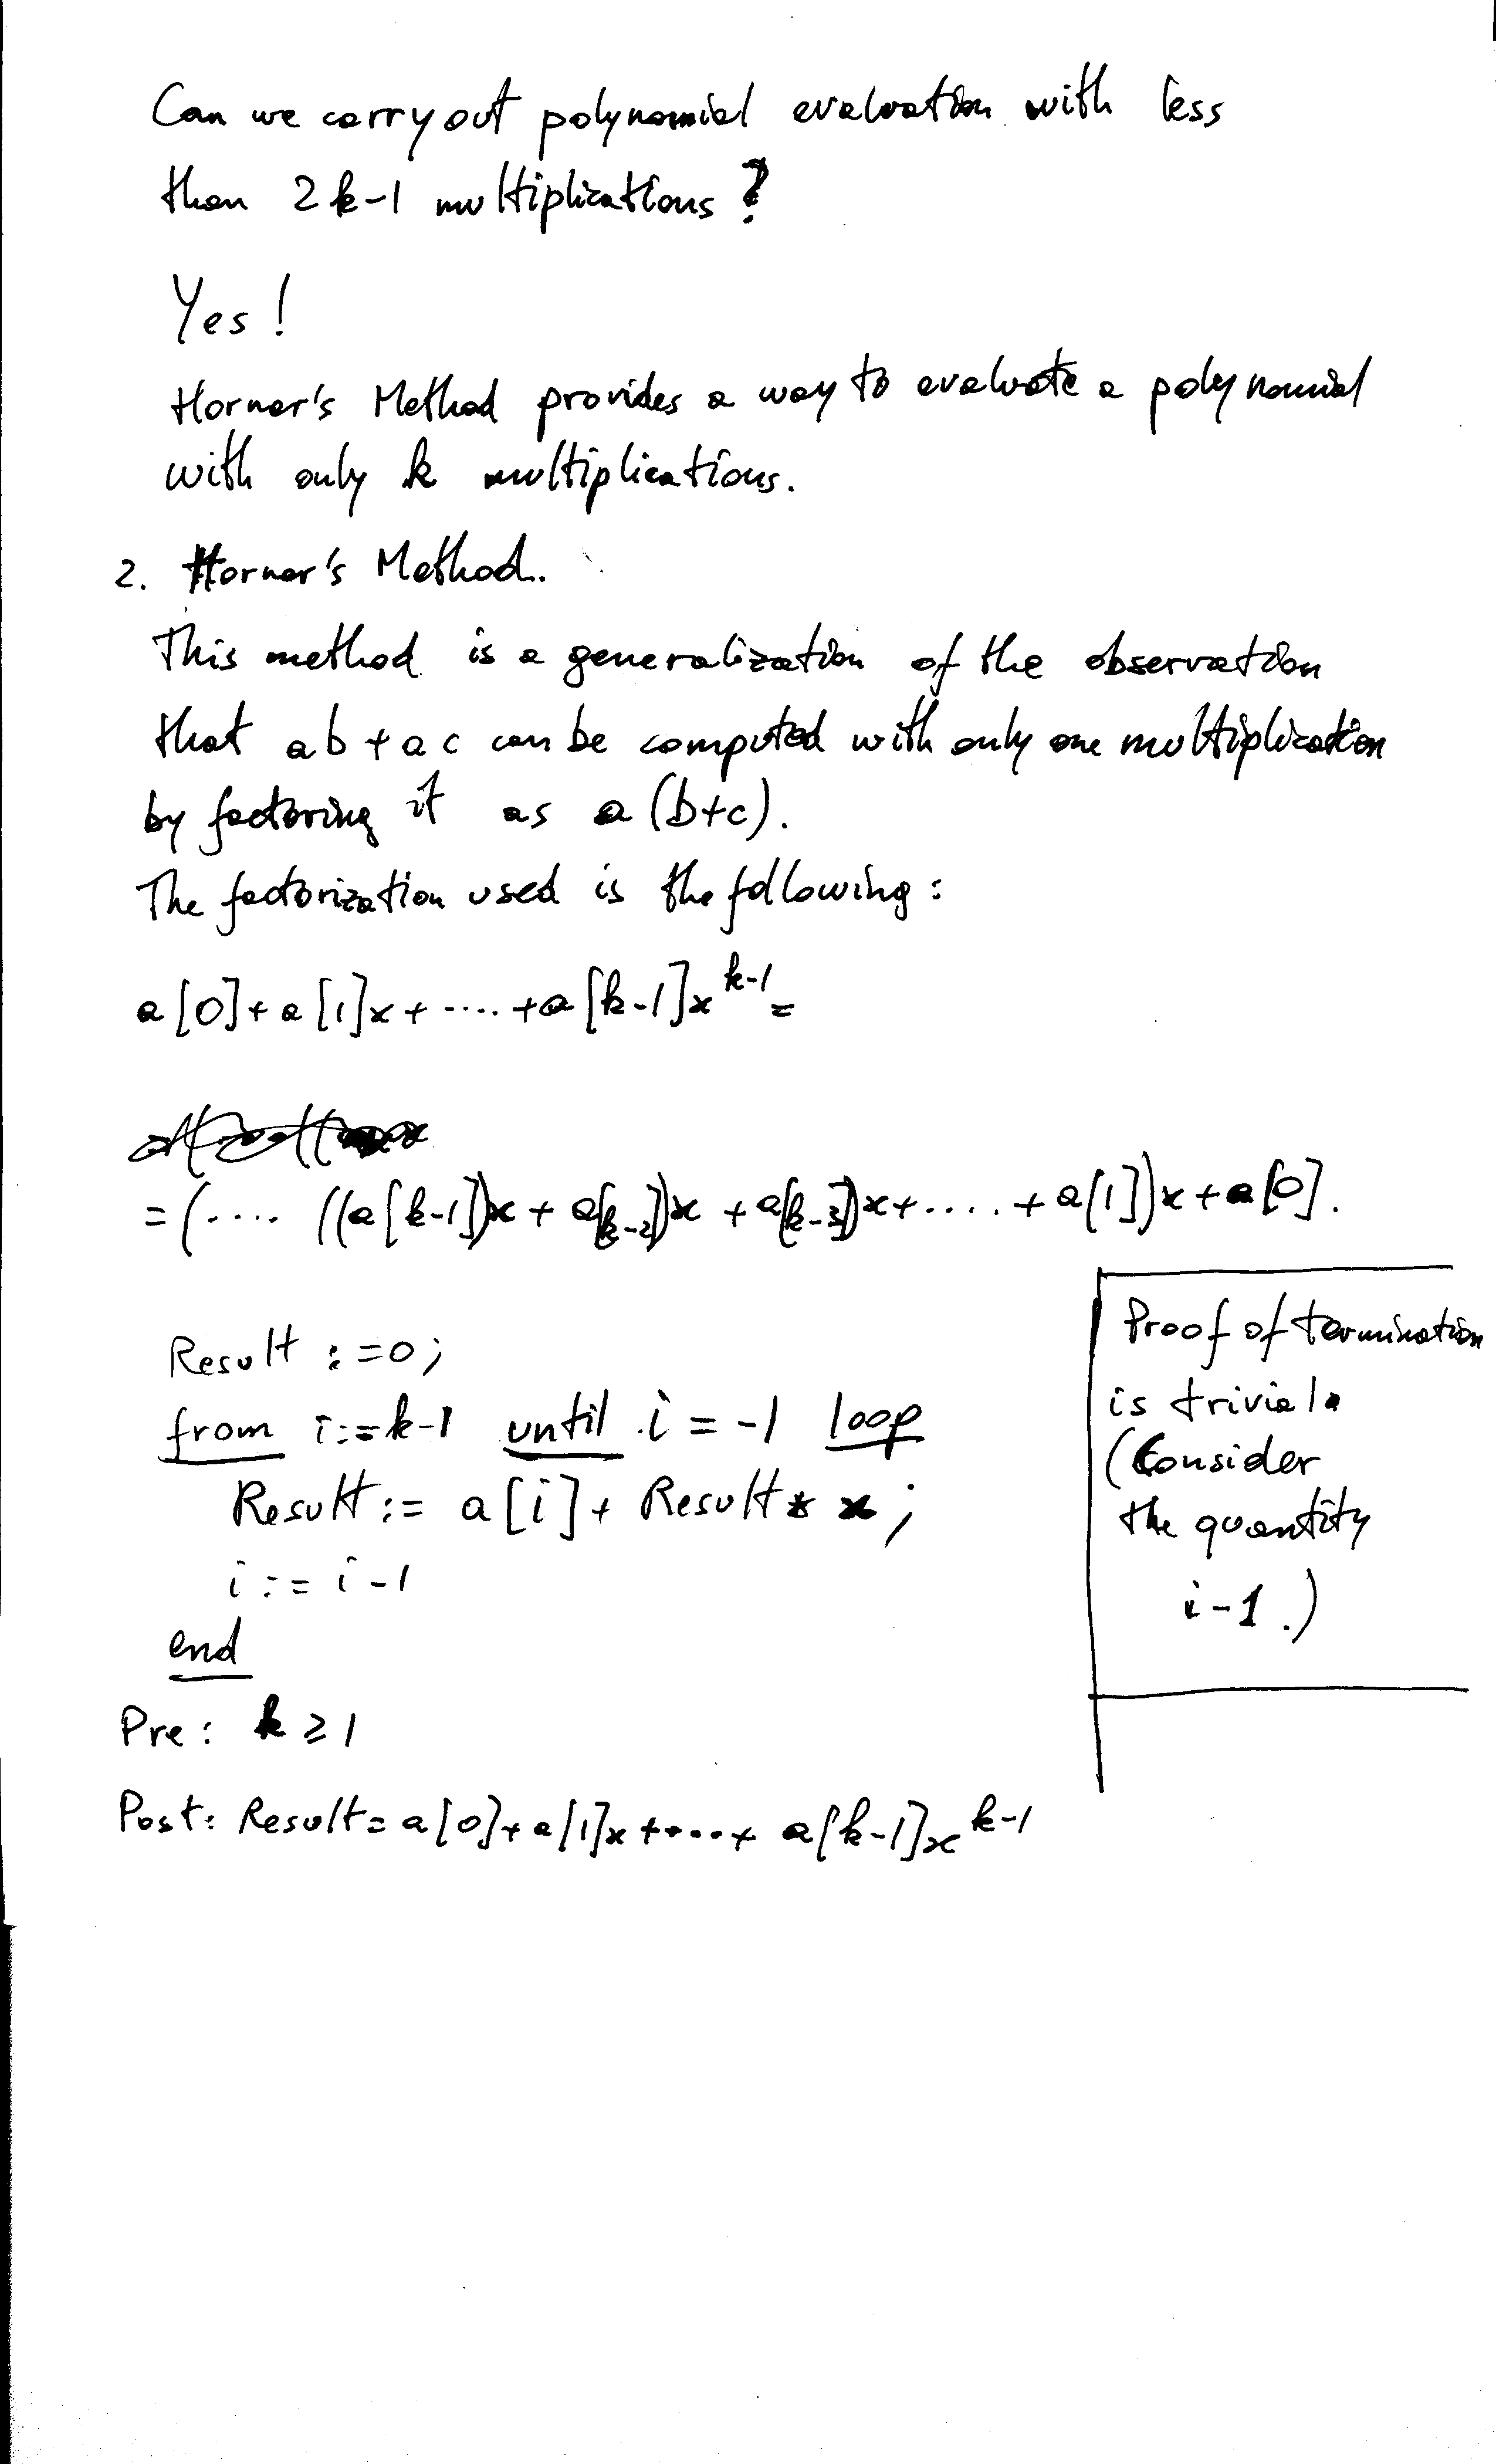 Can we carry out polynomial evaluation with less
than 2k-1 multiplications?
Yes!
Horner's Method provides a way to evaluate a polynomial
with only k multiplications.
2. Horner's Method.
This method is a generalization of the observation
that ab+ac can be computed with only one multiplication
by factoring it as a(b+c).
The factorization used is the following:
a[0]+a[1]x+.....+a[k-1]x^{k-1}=
=(.... ((a[k-1])x + a[k-2])x + a[k-3])x+.....+a[1])x+a[0].
Result :=0;
from i:=k-1 until i=-1 loop
Result:= a[i]+ Result* x;
i:=i-1
end
Pre: k≥1
Post: Result=a[0]+a[1]x+....+ a[k-1]x^{k-1}
Proof of termination
is trivial.
(Consider
the quantity
i-1.)